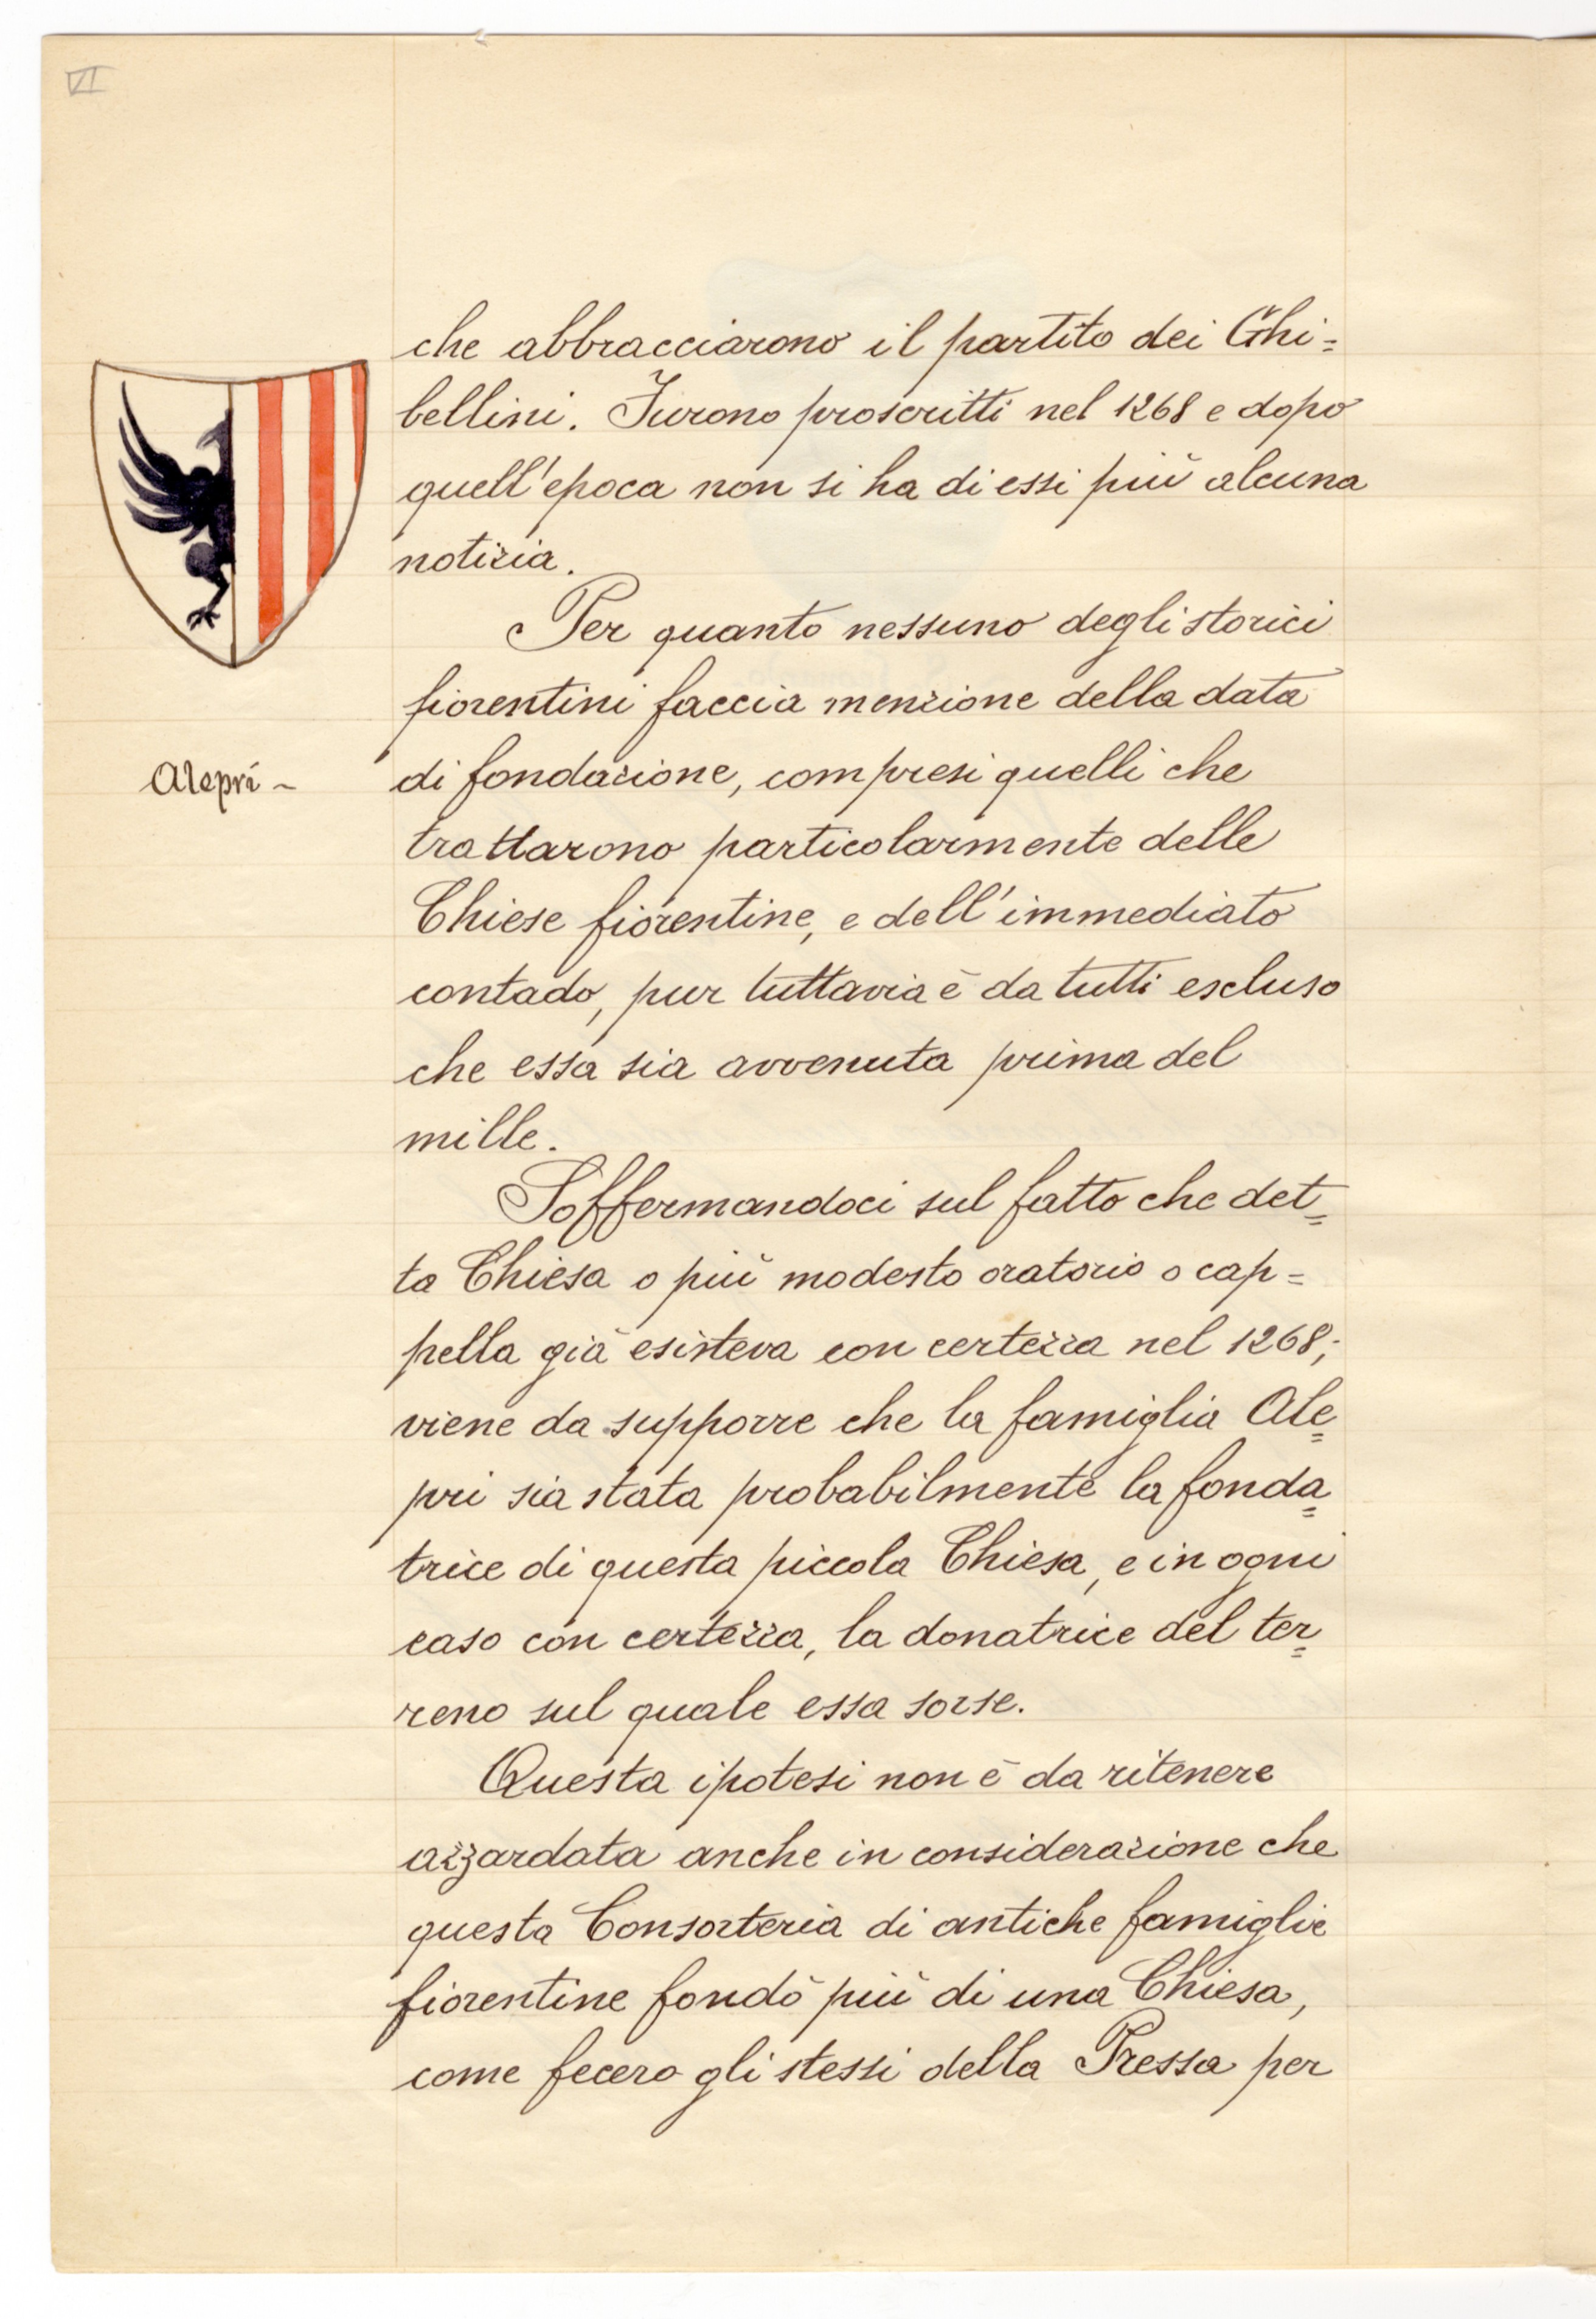 VI
che abbracciarono il partito dei Ghi=
bellini. Furono proscritti nel 1268 e dopo
quell'epoca non si ha di essi più alcuna
notizia.
Per quanto nessuno degli storici
fiorentini faccia menzione della data
Alepri -
di fondazione, compresi quelli che
trattarono particolarmente delle
Chiese fiorentine, e dell'immediato
contado, pur tuttavia è da tutti escluso
che essa sia avvenuta prima del
mille.
Soffermandoci sul fatto che det=
ta Chiesa o più modesto oratorio o cap=
pella già esisteva con certezza nel 1268;
viene da supporre che la famiglia Ale=
pri sia stata probabilmente la fonda=
trice di questa piccola Chiesa, e in ogni
caso con certezza, la donatrice del ter=
reno sul quale essa sorse.
Questa ipotesi non è da ritenere
azzardata anche in considerazione che
questa Consorteria di antiche famiglie
fiorentine fondò più di una Chiesa,
come fecero gli stessi della Pressa per